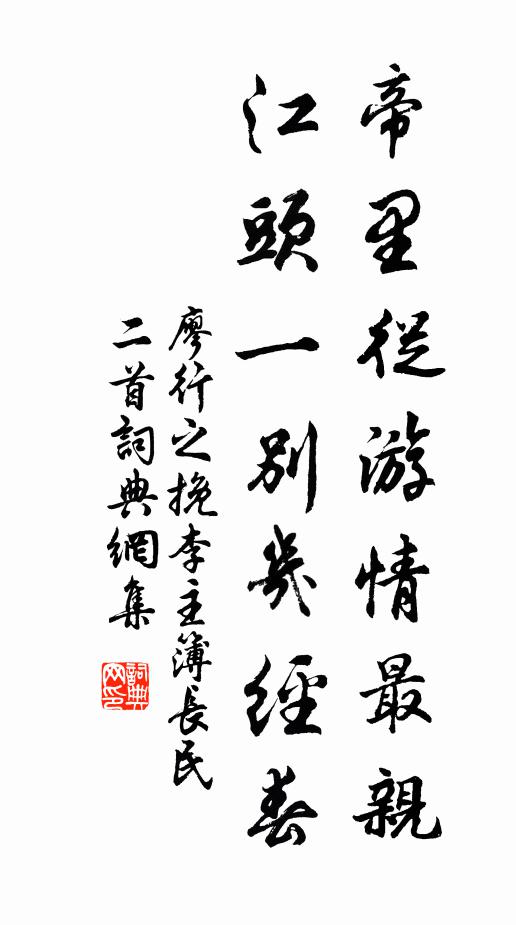 帝里從游情最親
江頭一別幾經春
廖行之挽李主簿長民
二首詞典網集
詞典
网印